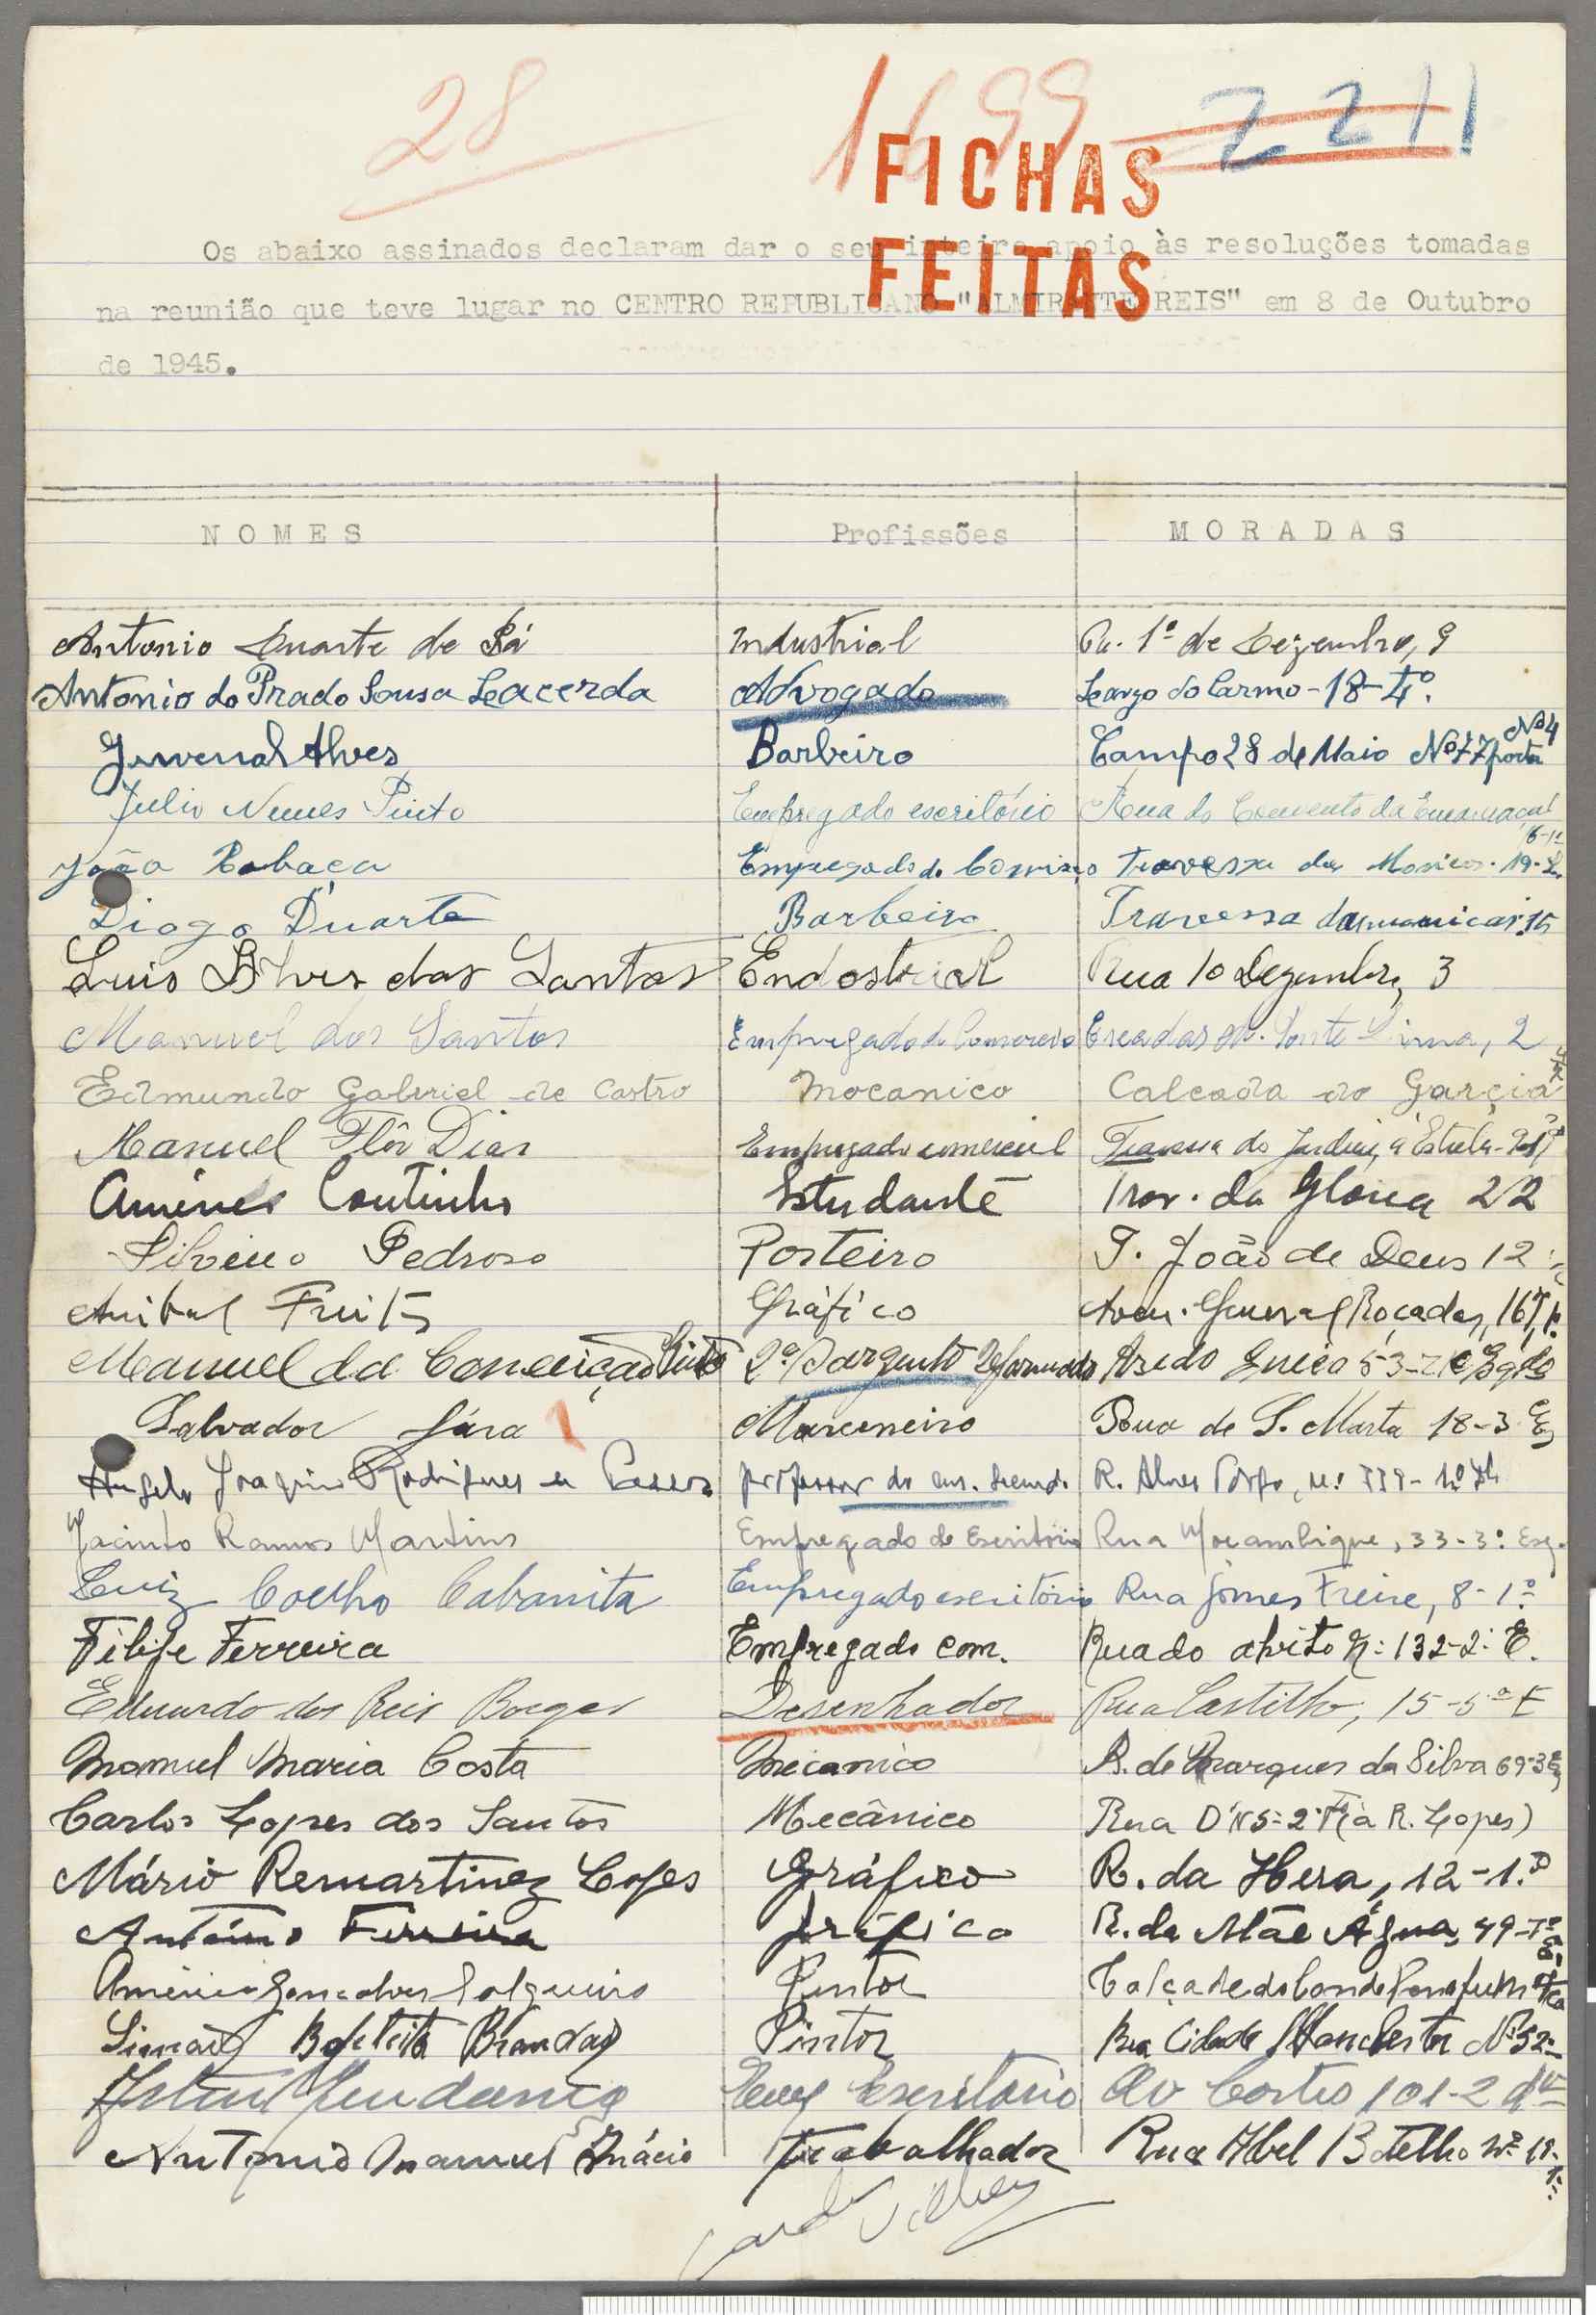 28
1699 2211
FICHAS
FEITAS
Os abaixo assinados declaram dar o seu inteiro apoio às resoluções tomadas
na reunião que teve lugar no CENTRO REPUBLICANO "ALMIRANTE REIS" em 8 de Outubro
de 1945.
NOMES Profissões MORADAS
Antonio Duarte de Sá Industrial Ru. 1º de Dezembro, 9
Antonio do Prado Sousa Lacerda Advogado Largo do Carmo - 18 - 4º.
Juvenal Alves Barbeiro Campo 28 de Maio Nº 77 porta Nº 4
Julio Nunes Pinto Empregado escritório Rua do Convento da Encarnação
João Robaça Empregado do Comércio Travessa das Monicas. 19-
Diogo Duarte Barbeiro Travessa das monicas 15
Luis Alves dos Santos Endostrial Rua 1º Dezembro, 3
Manuel dos Santos Empregado do Comercio Escadas Ponte Lima, 2
Edmundo Gabriel de Castro Mocanico Calcada do Garcia
Manuel Flôr Dias Empregado comercial Travessa do Jardim, á Estrela
Coutinho Estudante Trav. da Gloria 22
Silvino Pedroso Porteiro T. João de Deus 12
Anibal Gráfico Aven. General Roçadas, 167,
Manuel da Conceição Pinto 2º Sargento Reformado 53-
Salvador Jára Marceneiro Rua de S. Marta 18-3 E
Angelo Joaquim Rodrigues professor do ens. secund. R. Alves
Jacinto Ramos Martins Empregado de Escritório Rua Moçambique, 33-3º. Esq.
Luiz Coelho Cabanita Empregado escritório Rua Gomes Freire, 8-1º
Filipe Ferreira Empregado com. Rua do alvito Nº 132-2º E.
Eduardo dos Reis Borges Desenhador Rua Castilho, 15-5º E
Manuel Maria Costa Mecanico R. de Marques da Silva 69-3
Carlos Lopes dos Santos Mecânico Rua D Nº 5-2º (à R. Lopes)
Mário Remartinez Lopes Gráfico R. da Hera, 12-1.º
António Ferreira gráfico R. da Mãe Água, 49-
Américo Gonçalves Salgueiro Pintor
Simão Batista Brandão Pintor Rua Cidade Manchester Nº 52
Emp Escritorio Av Cortes 101-2 dto
Antonio Manuel Inácio trabalhador Rua Abel Botelho Nº 18-